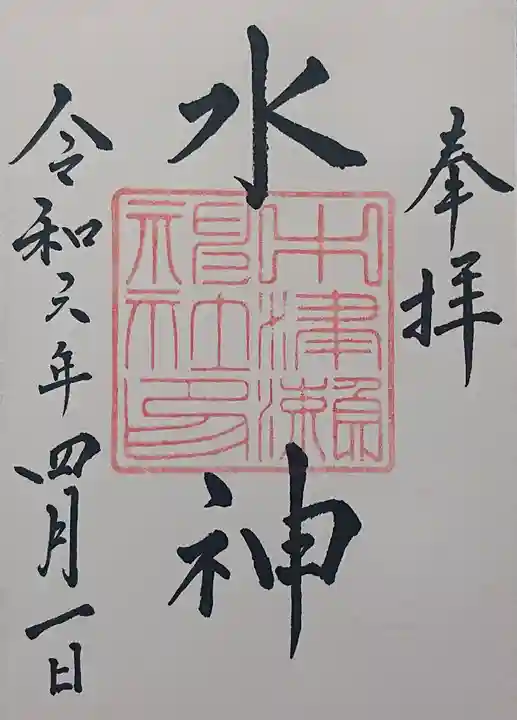 奉拝
水神
中津瀬
神社印
令和六年四月一日